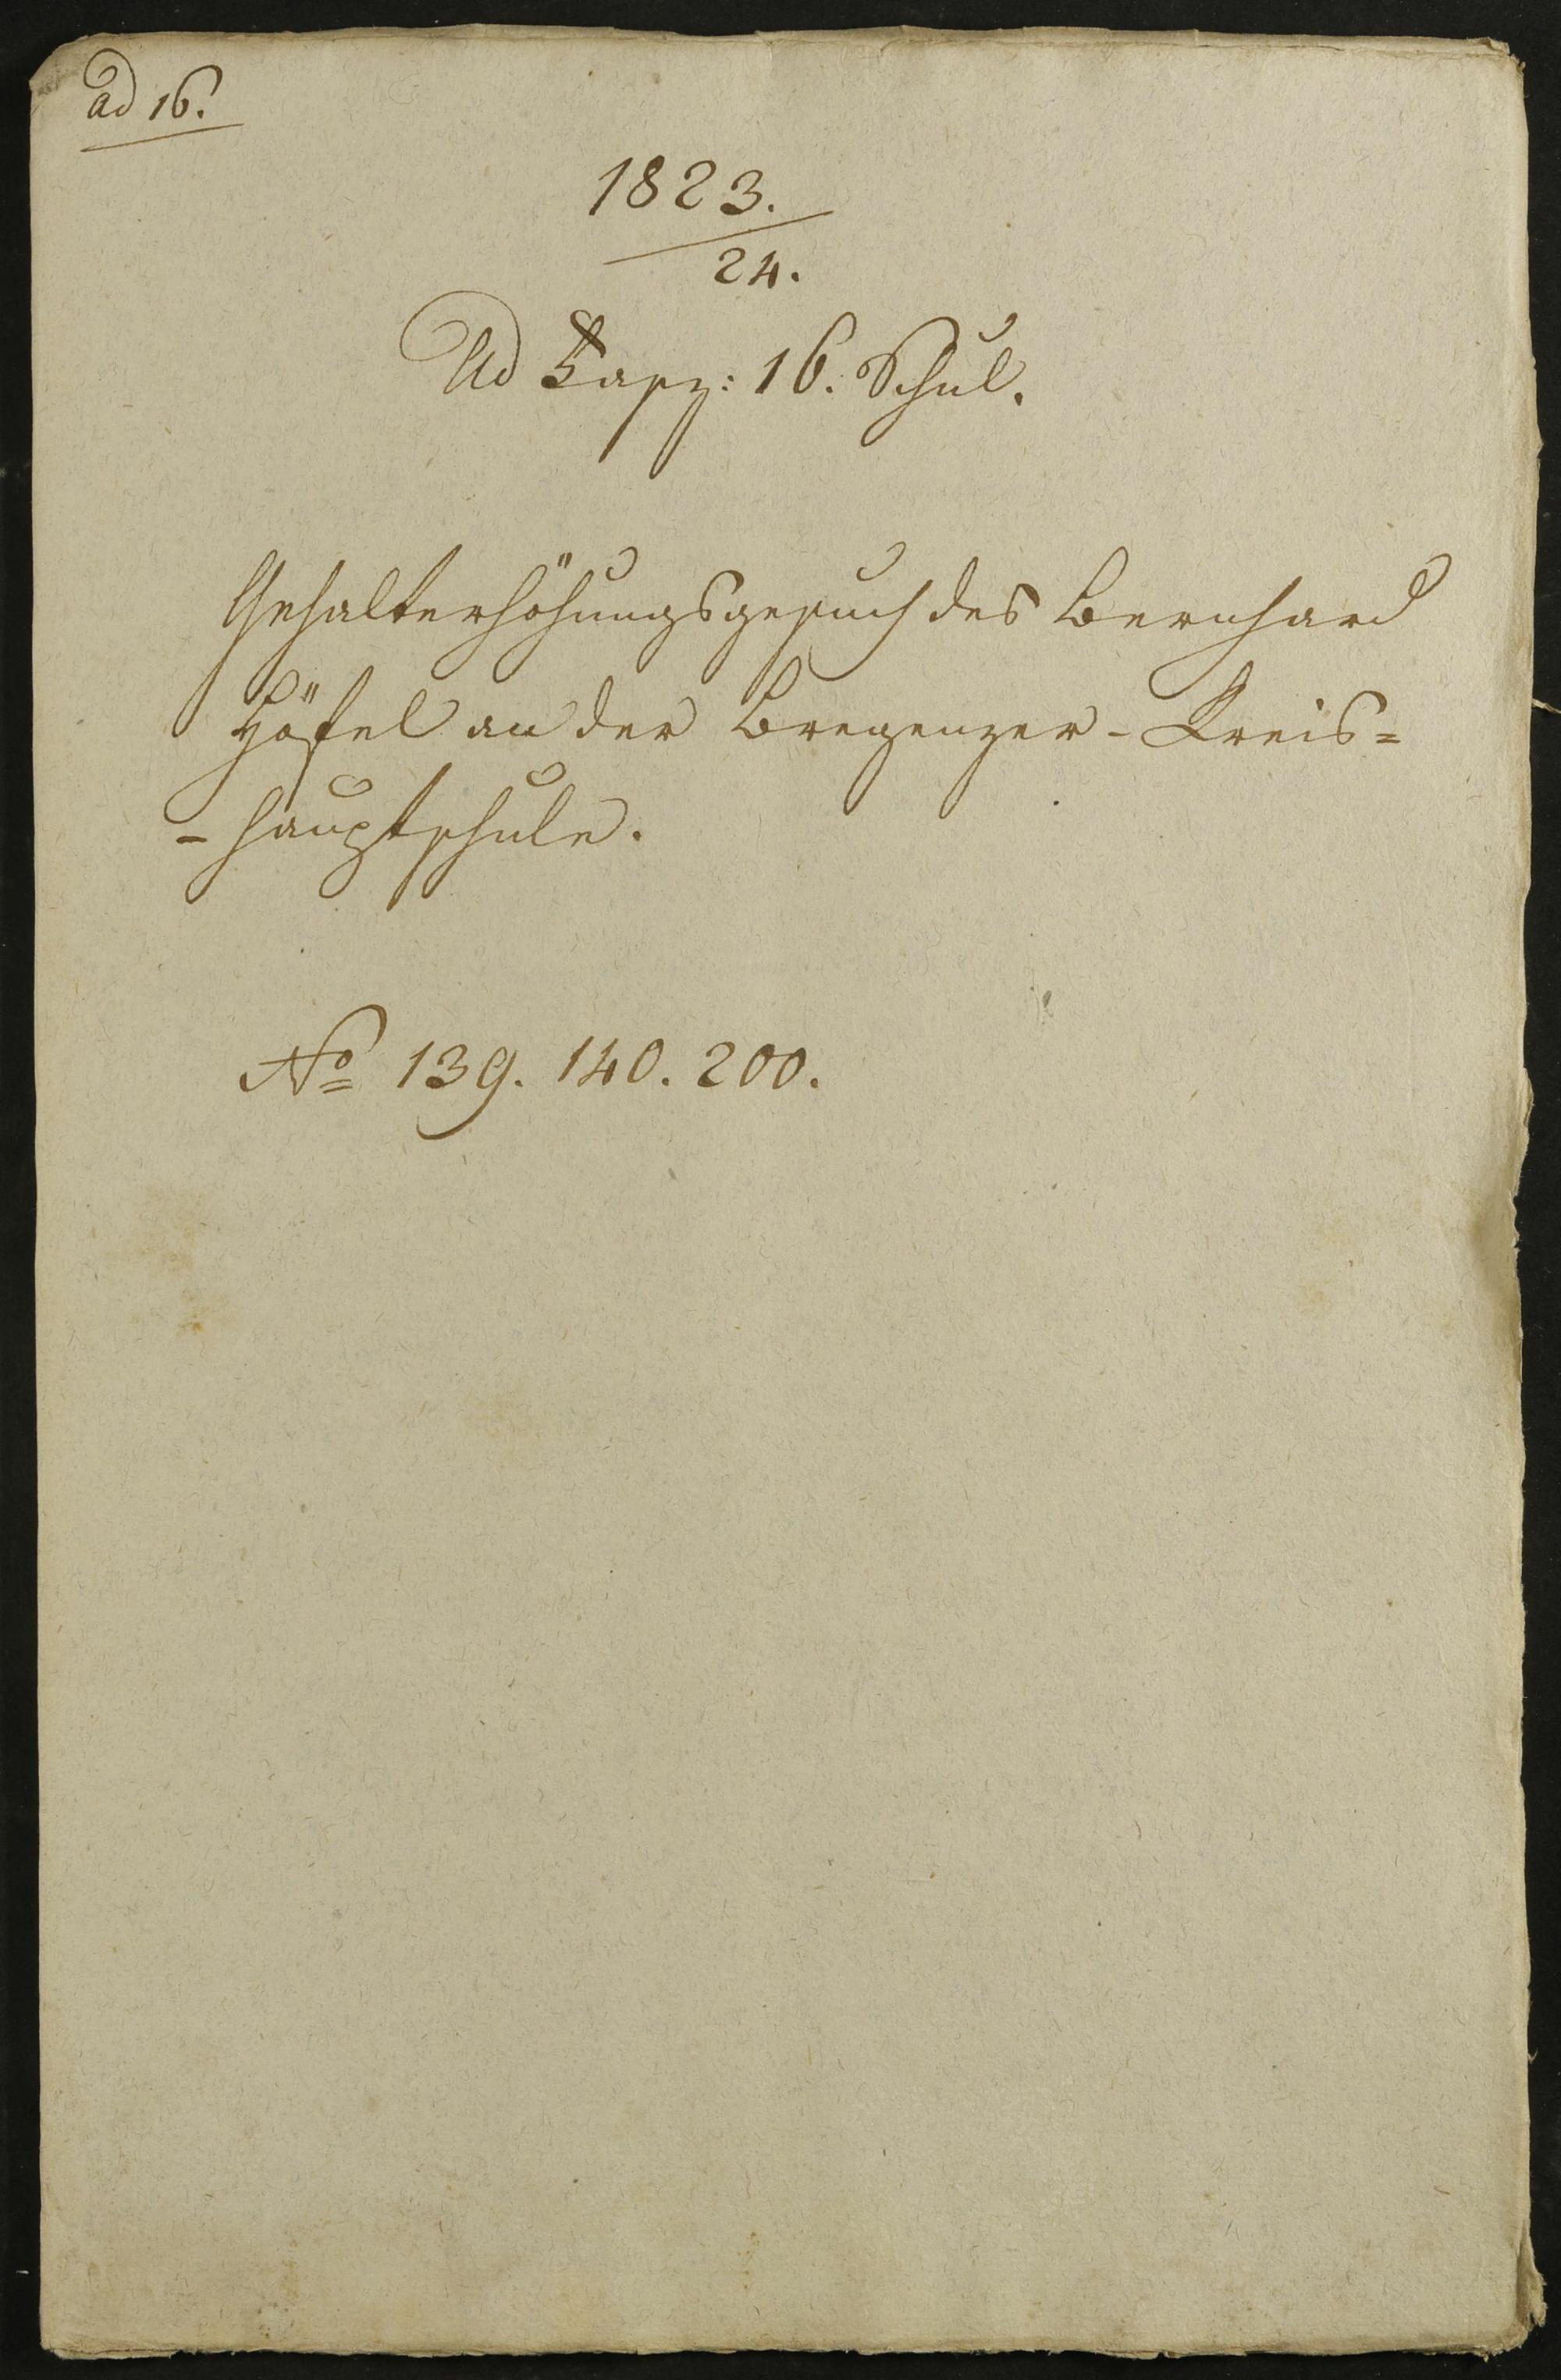 ad 16.
1823.
24.
Ad Fasz: 16. Schul.
Gehalterhöhungsgesuch des Bernhard
Höfel an der Bregenzer-Kreis=
-hauptschule.
No 139. 140. 200.